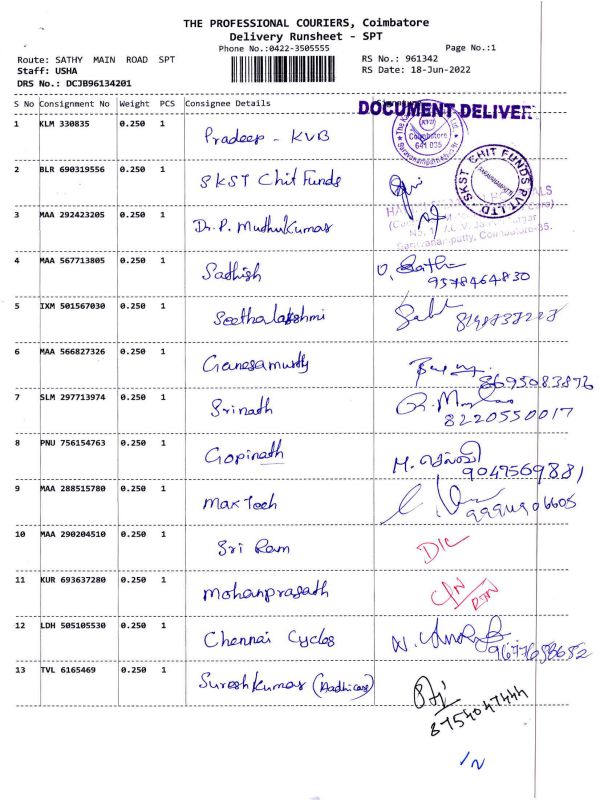 THE PROFESSIONAL COURIERS, Coimbatore
Delivery Runsheet - SPT
Phone No.:0422-3505555
Page No.:1
Route: SATHY MAIN ROAD SPT
RS No.: 961342
Staff: USHA
RS Date: 18-Jun-2022
DRS No.: DCJB96134201
S No Consignment No Weight PCS Consignee Details
DOCUMENT DELIVER
1 KLM 330835 0.250 1 Pradeep - KVB
Coimbatore
641 035
2 BLR 690319556 0.250 1 SKST Chit Funds
SKST CHIT FUNDS PVT LTD
SARAVANAMPATTY
3 MAA 292423205 0.250 1 Dr. P. Muthukumar
Saravanamputty, Coimbatore-35.
4 MAA 567713805 0.250 1 Sathish
9578464830
5 IXM 501567030 0.250 1 Seethalakshmi
6 MAA 566827326 0.250 1 Ganesamurthy
8695083876
7 SLM 297713974 0.250 1 Srinath
8220550017
8 PNU 756154763 0.250 1 Gopinath
9047569881
9 MAA 288515780 0.250 1 Max Tech
10 MAA 290204510 0.250 1 Sri Ram
D/C
11 KUR 693637280 0.250 1 Mohanprasath
12 LDH 505105530 0.250 1 Chennai Cycles
9677658652
13 TVL 6165469 0.250 1 Suresh Kumar (Aadhi care)
8754047444